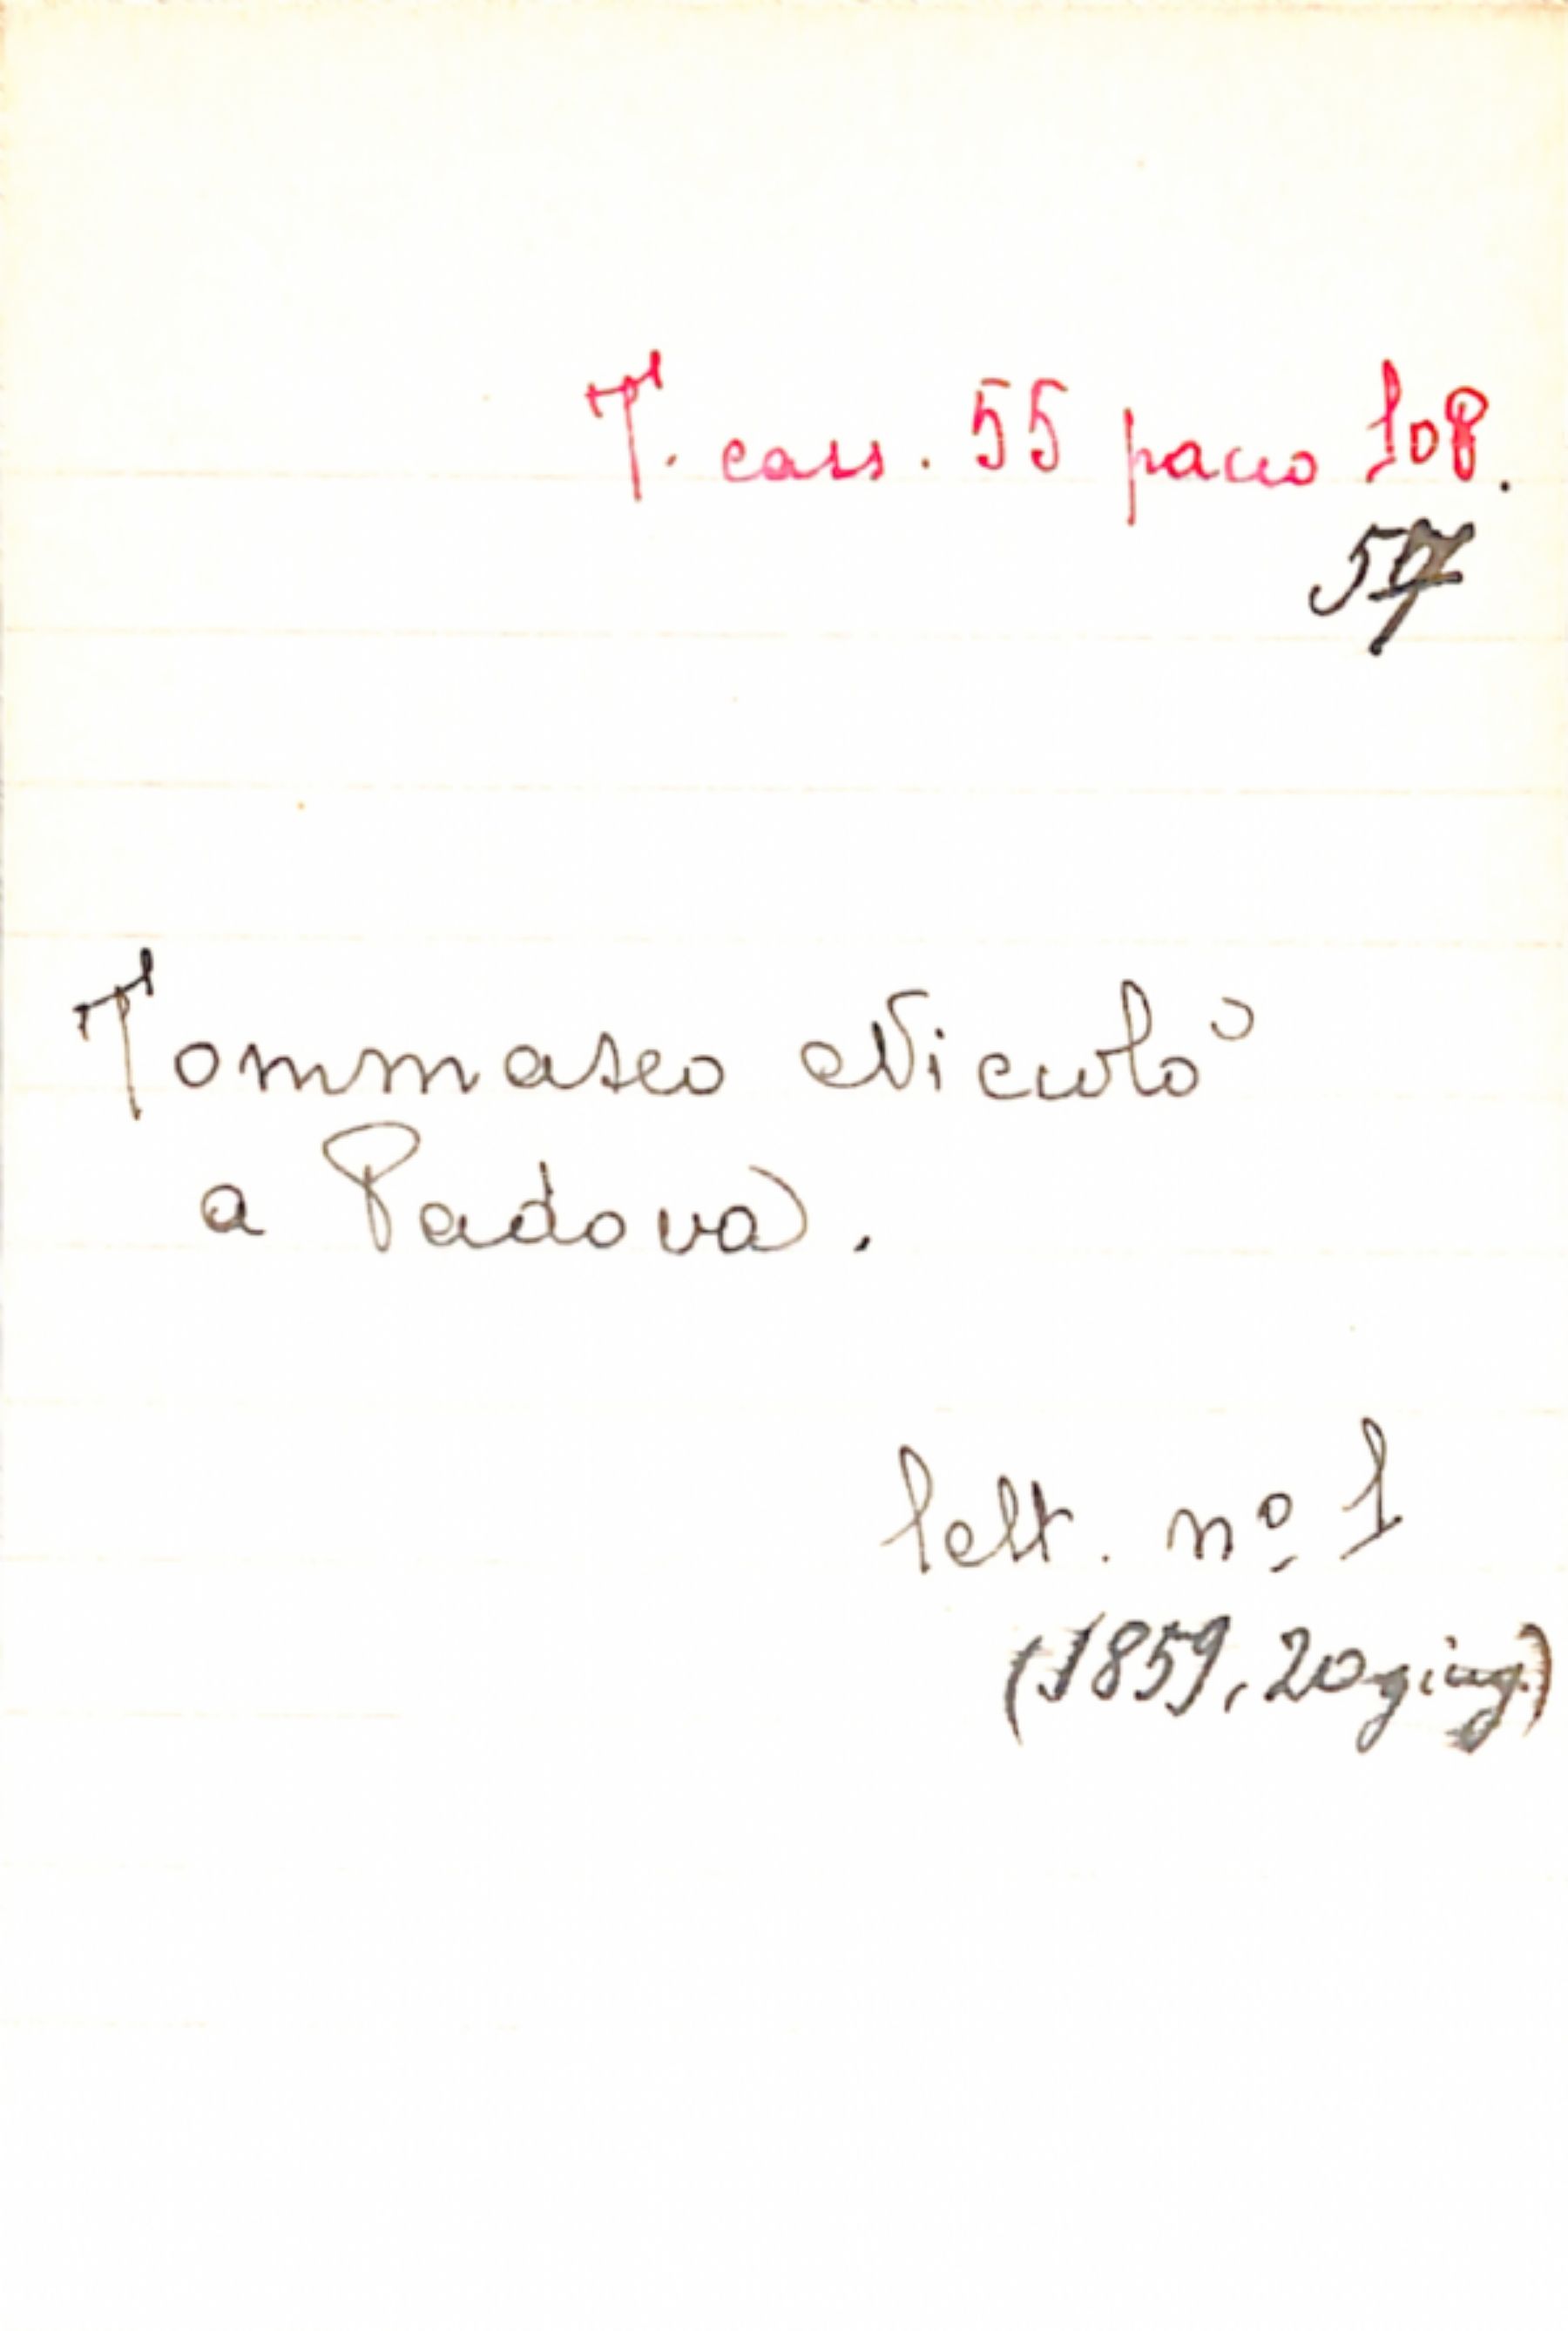 T. cass. 55 pacco 108.
57
Tommaseo Niccolò
a Padova.
lett. nº 1
(1859, 20 giug.)